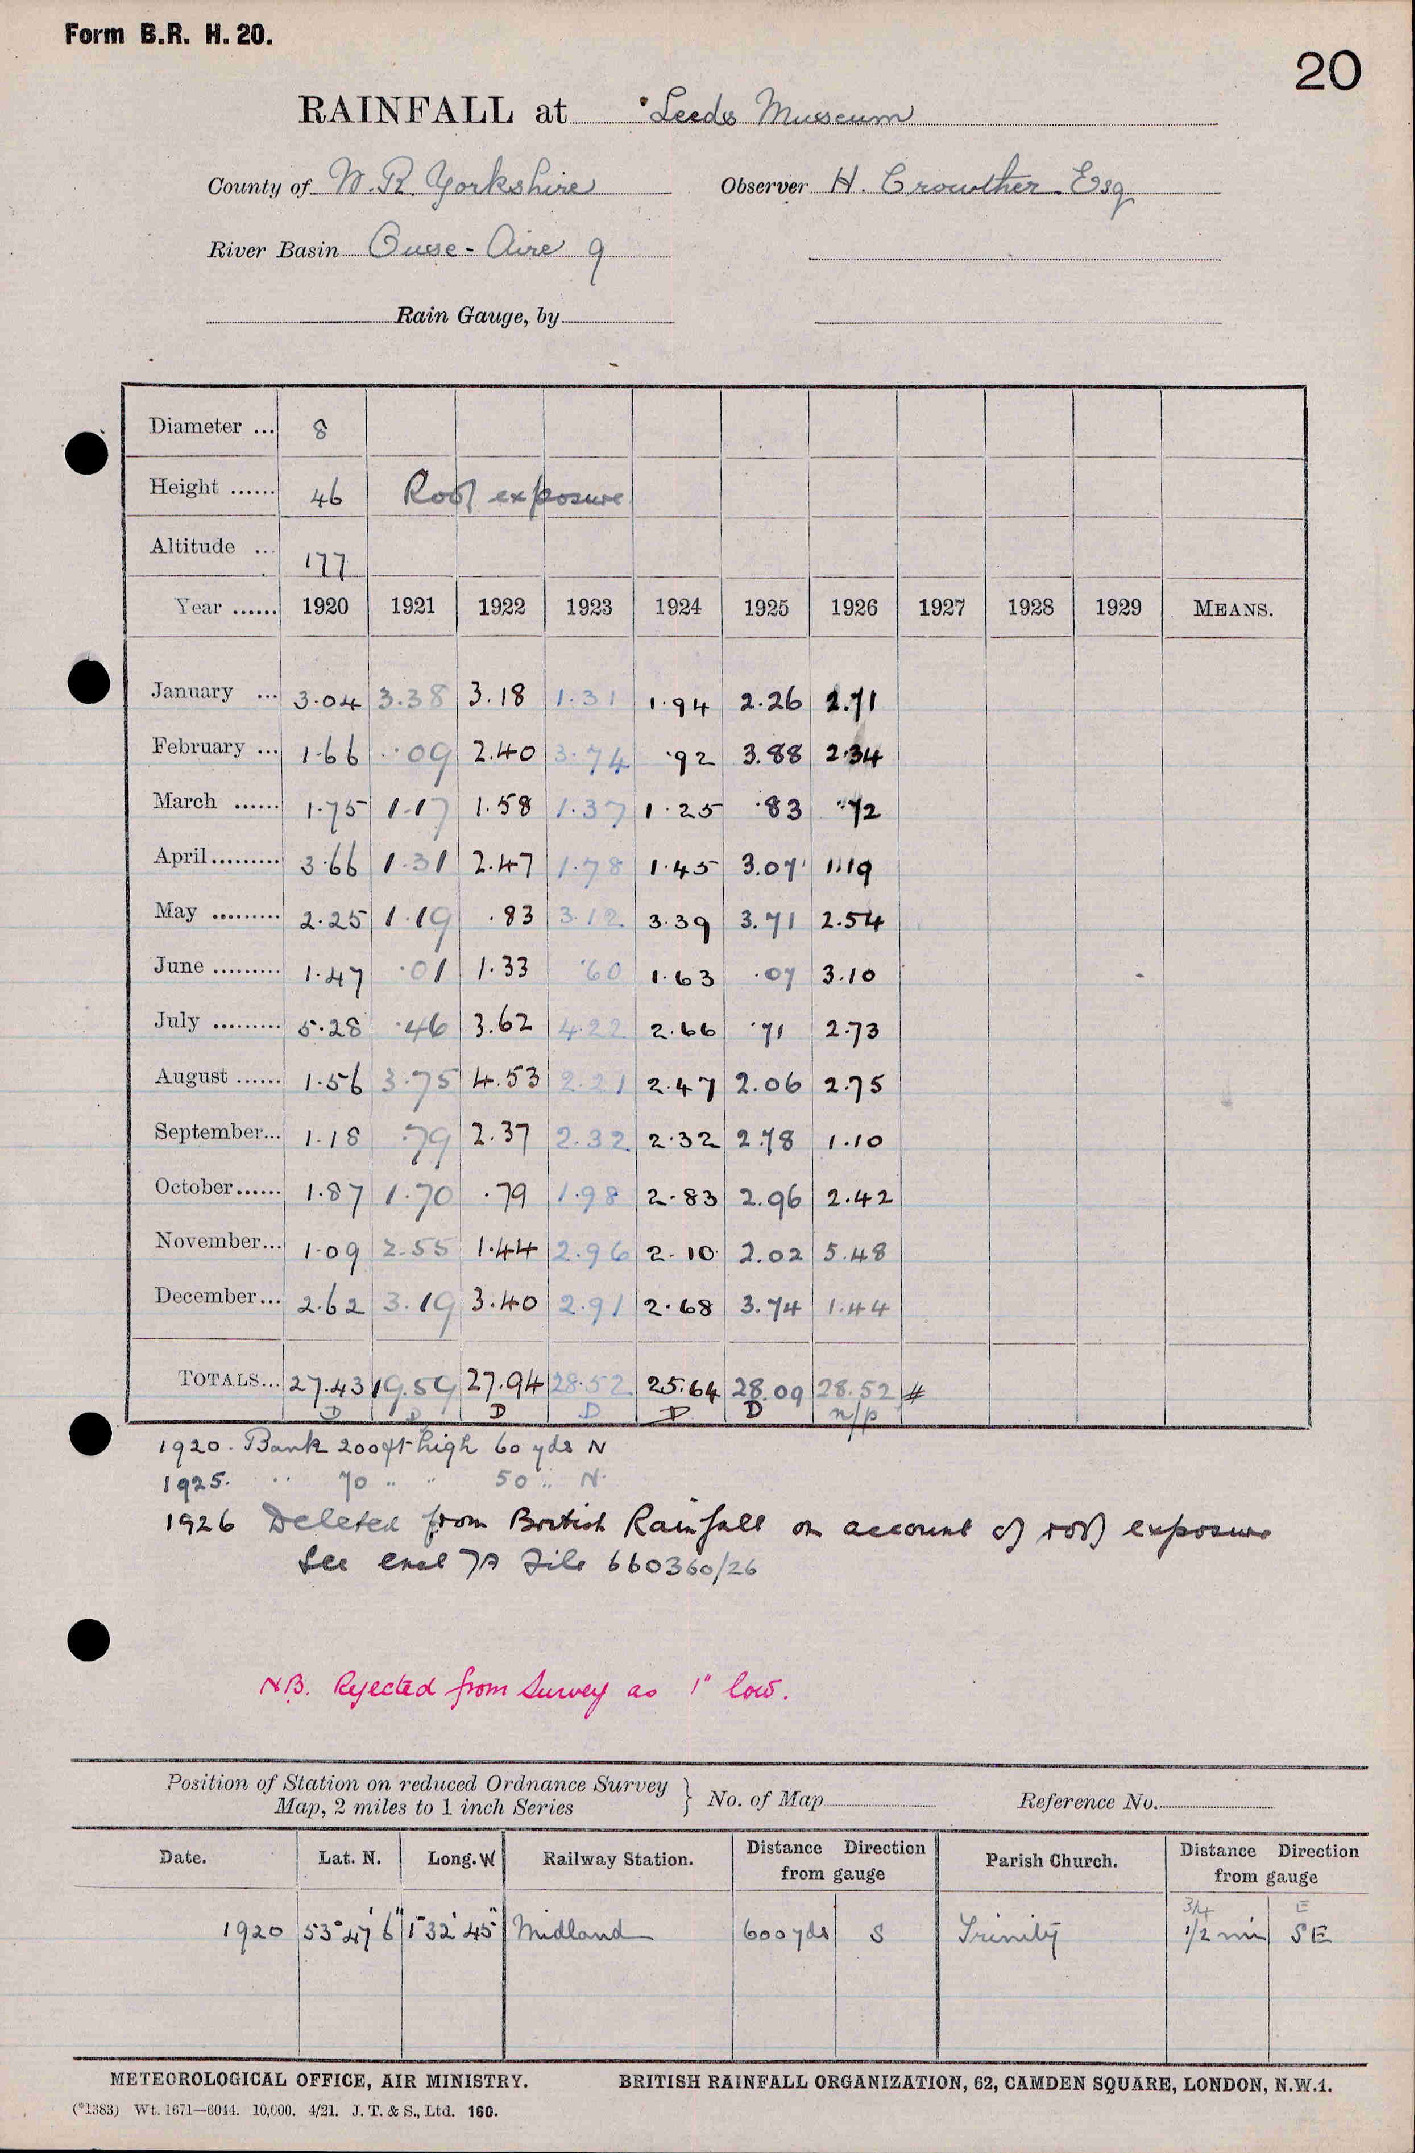 Form B.R. H. 20.
20
RAINFALL at Leeds Museum
County of W. R. Yorkshire Observer H. Crowther Esq
River Basin Ouse - Aire 9
Rain Gauge, by
Diameter ... 8
Height ...... 46 Roof exposure
Altitude ... 177
Year ...... 1920 1921 1922 1923 1924 1925 1926 1927 1928 1929 MEANS.
January ... 3.04 3.38 3.18 1.31 1.94 2.26 2.71
February ... 1.66 .09 2.40 3.74 .92 3.88 2.34
March ...... 1.75 1.17 1.58 1.37 1.25 .83 .72
April ......... 3.66 1.31 2.47 1.78 1.45 3.07 1.19
May ......... 2.25 1.19 .83 3.12 3.39 3.71 2.54
June ......... 1.47 .01 1.33 .60 1.63 .07 3.10
July ......... 5.28 .46 3.62 4.22 2.66 .71 2.73
August ...... 1.56 3.75 4.53 2.21 2.47 2.06 2.75
September... 1.18 .79 2.37 2.32 2.32 2.78 1.10
October...... 1.87 1.70 .79 1.98 2.83 2.96 2.42
November... 1.09 2.55 1.44 2.96 2.10 2.02 5.48
December... 2.62 3.19 3.40 2.91 2.68 3.74 1.44
TOTALS... 27.43 19.59 27.94 28.52 25.64 28.09 28.52 #
D D D D D D n/p
1920. Bank 200ft high 60 yds N
1925. " 70 " " 50 " N.
1926 Deleted from British Rainfall on account of roof exposure
See encl 7A File 660360/26
NB. Rejected from Survey as 1" low.
Position of Station on reduced Ordnance Survey
Map, 2 miles to 1 inch Series } No. of Map Reference No.
Date. Lat. N. Long. W Railway Station. Distance Direction from gauge Parish Church. Distance Direction from gauge
3/4 E
1920 53° 47' 6" 1° 32' 45" Midland 600 yds S Trinity 1/2 mi SE
METEOROLOGICAL OFFICE, AIR MINISTRY. BRITISH RAINFALL ORGANIZATION, 62, CAMDEN SQUARE, LONDON, N.W.1.
(*1383) Wt. 1671—6044. 10,000. 4/21. J. T. & S., Ltd. 160.